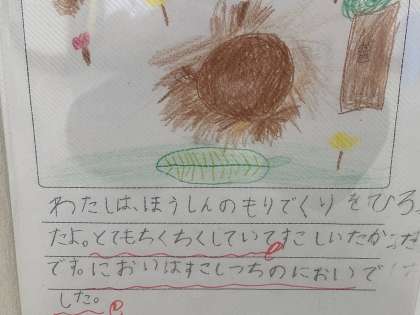 わたしは、ほうしんのもりでくりをひろっ
たよ。とてもちくちくしていてすこしいたかった
です。においはすこしつちのにおいで
した。